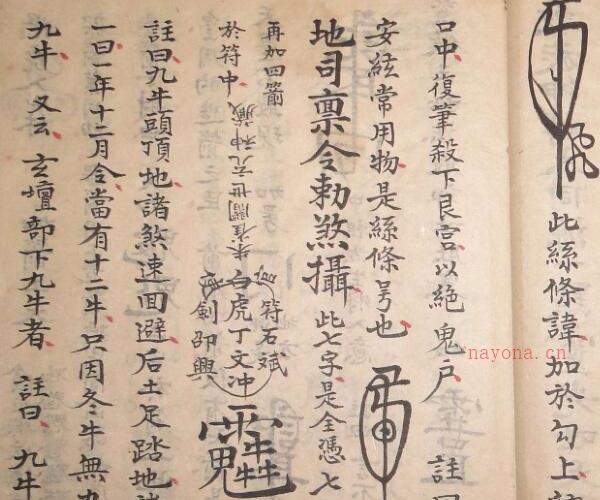 此絲條諱加於勾上
口中復筆殺下艮宮以絕鬼戸 註
安紘常用物是絲條号也
地司禀令勅煞攝 此七字是全憑七
再加四箭
於符中
符石斌
白虎丁文冲
劍邵興
註曰九牛頭頂地諸煞速回避后土足踏地
一曰一年十二月令當有十二牛只因冬牛無九
九牛 又云 玄壇部下九牛者 註曰 九牛
nayona.cn